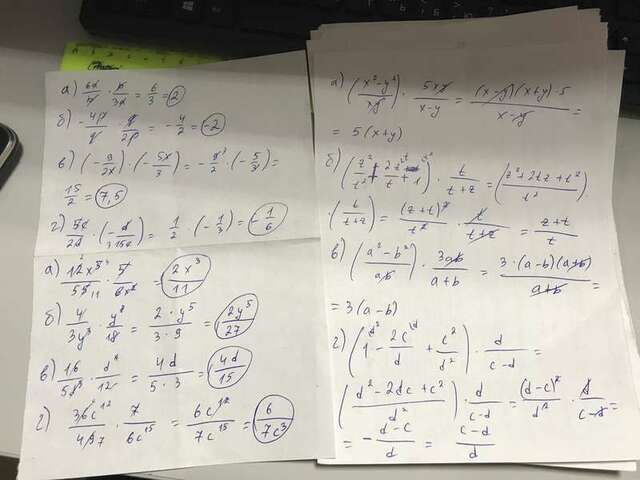 а) 6a/b · b/3a = 6/3 = 2
б) -4p/q · q/2p = -4/2 = -2
в) (-9/2x) · (-5x/3) = -9/2 · (-5/3) =
15/2 = 7,5
г) 5c/2d · (-d/15c) = 1/2 · (-1/3) = -1/6
а) 12x⁵/55 · 5/6x² = 2x³/11
б) 4/3y³ · y⁸/18 = 2·y⁵/3·9 = 2y⁵/27
в) 16/5d³ · d⁴/12 = 4d/5·3 = 4d/15
г) 36c¹²/49 · 7/6c¹⁵ = 6c¹²/7c¹⁵ = 6/7c³
а) (x²-y²/xy) · 5xy/x-y = (x-y)(x+y)·5/x-y =
= 5(x+y)
б) (z²/t² + 2z/t + 1) · t/t+z = (z²+2tz+t²/t²)
· (t/t+z) = (z+t)²/t² · t/t+z = z+t/t
в) (a²-b²/ab) · 3ab/a+b = 3·(a-b)(a+b)/a+b =
= 3(a-b)
г) (1 - 2c/d + c²/d²) · d/c-d =
(d²-2dc+c²/d²) · d/c-d = (d-c)²/d² · d/c-d
= -d-c/d = c-d/d